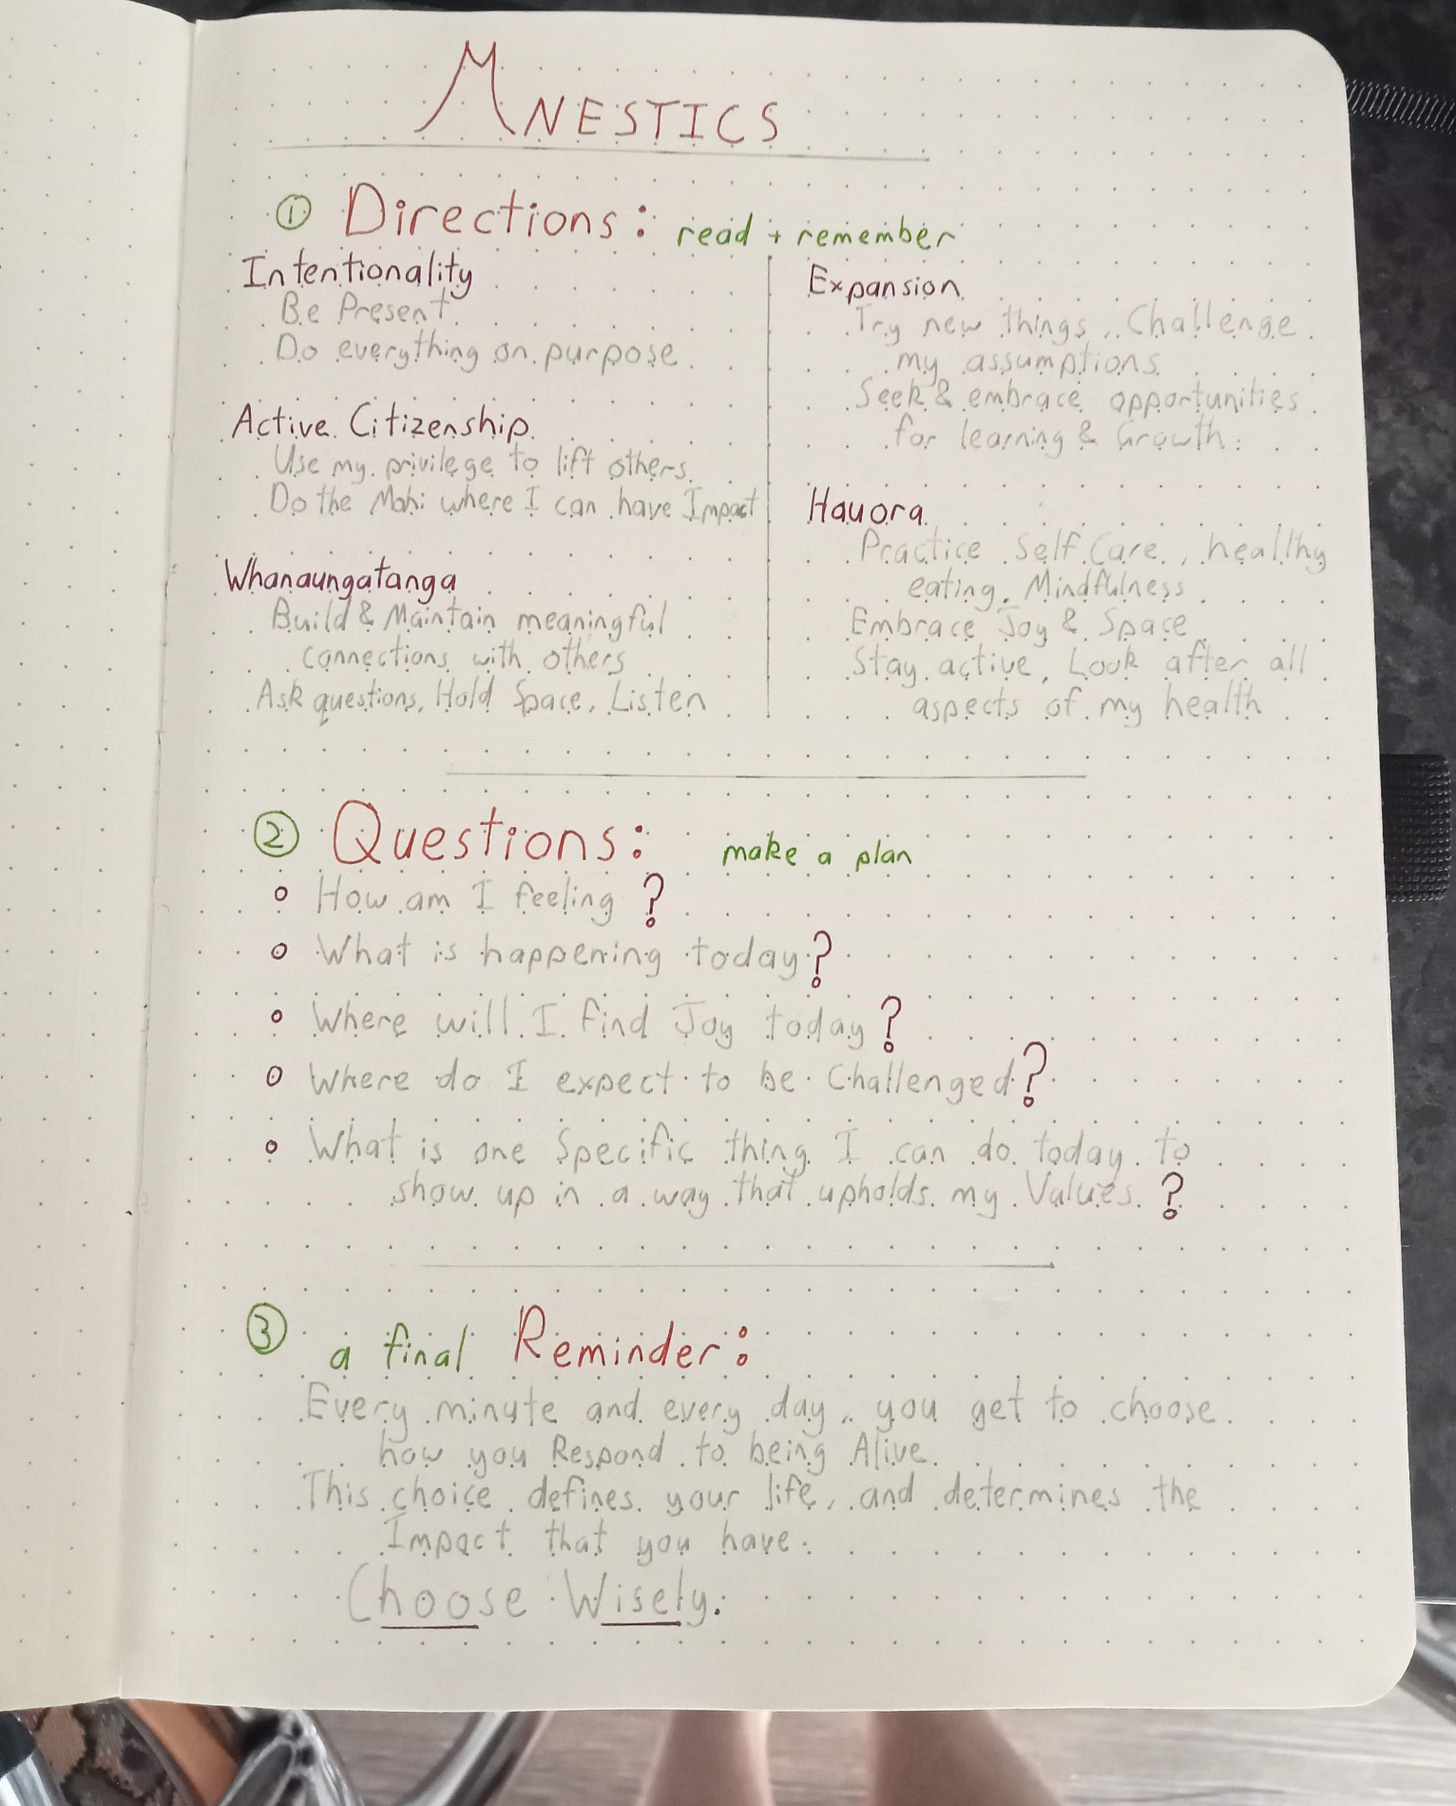 MNESTICS
① Directions: read + remember
Intentionality
Be Present
Do everything on purpose
Active Citizenship
Use my privilege to lift others
Do the Mahi where I can have Impact
Whanaungatanga
Build & Maintain meaningful
connections with others
Ask questions, Hold Space, Listen
Expansion
Try new things, Challenge
my assumptions
Seek & embrace opportunities
for learning & Growth.
Hauora
Practice Self Care, healthy
eating, Mindfulness
Embrace Joy & Space
Stay active, Look after all
aspects of my health
② Questions: make a plan
How am I feeling?
What is happening today?
Where will I find Joy today?
Where do I expect to be Challenged?
What is one Specific thing I can do today to
show up in a way that upholds my Values?
③ a final Reminder:
Every minute and every day, you get to choose
how you Respond to being Alive.
This choice defines your life, and determines the
Impact that you have.
Choose Wisely.